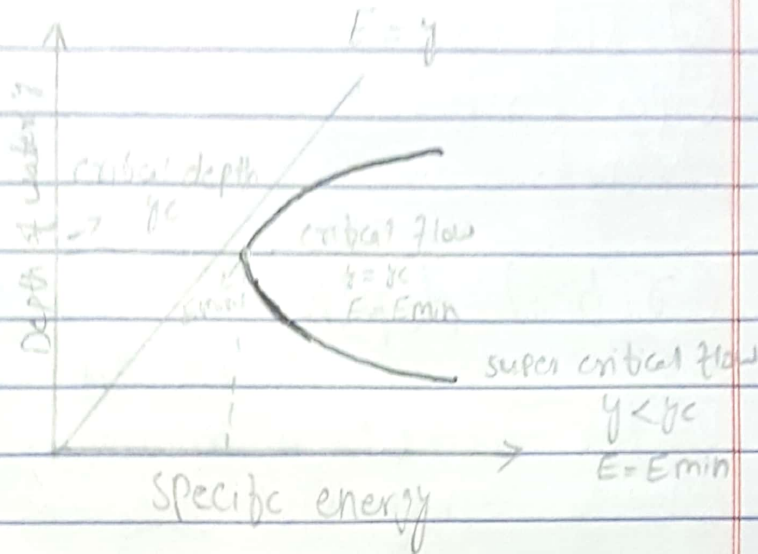 E = y
Depth of water y
critical depth
yc
critical flow
y = yc
E = Emin
super critical flow
y < yc
E = Emin
Specific energy